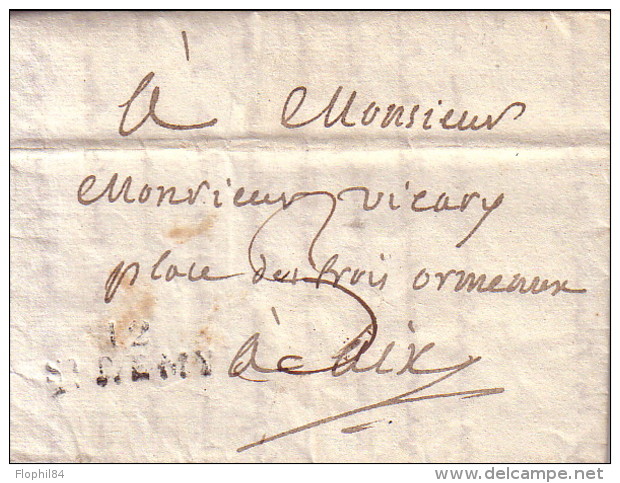 à Monsieur
Monsieur vicary
place des trois ormeaux
à Aix
12
ST REMY
3
Flophil84
delcampe.net